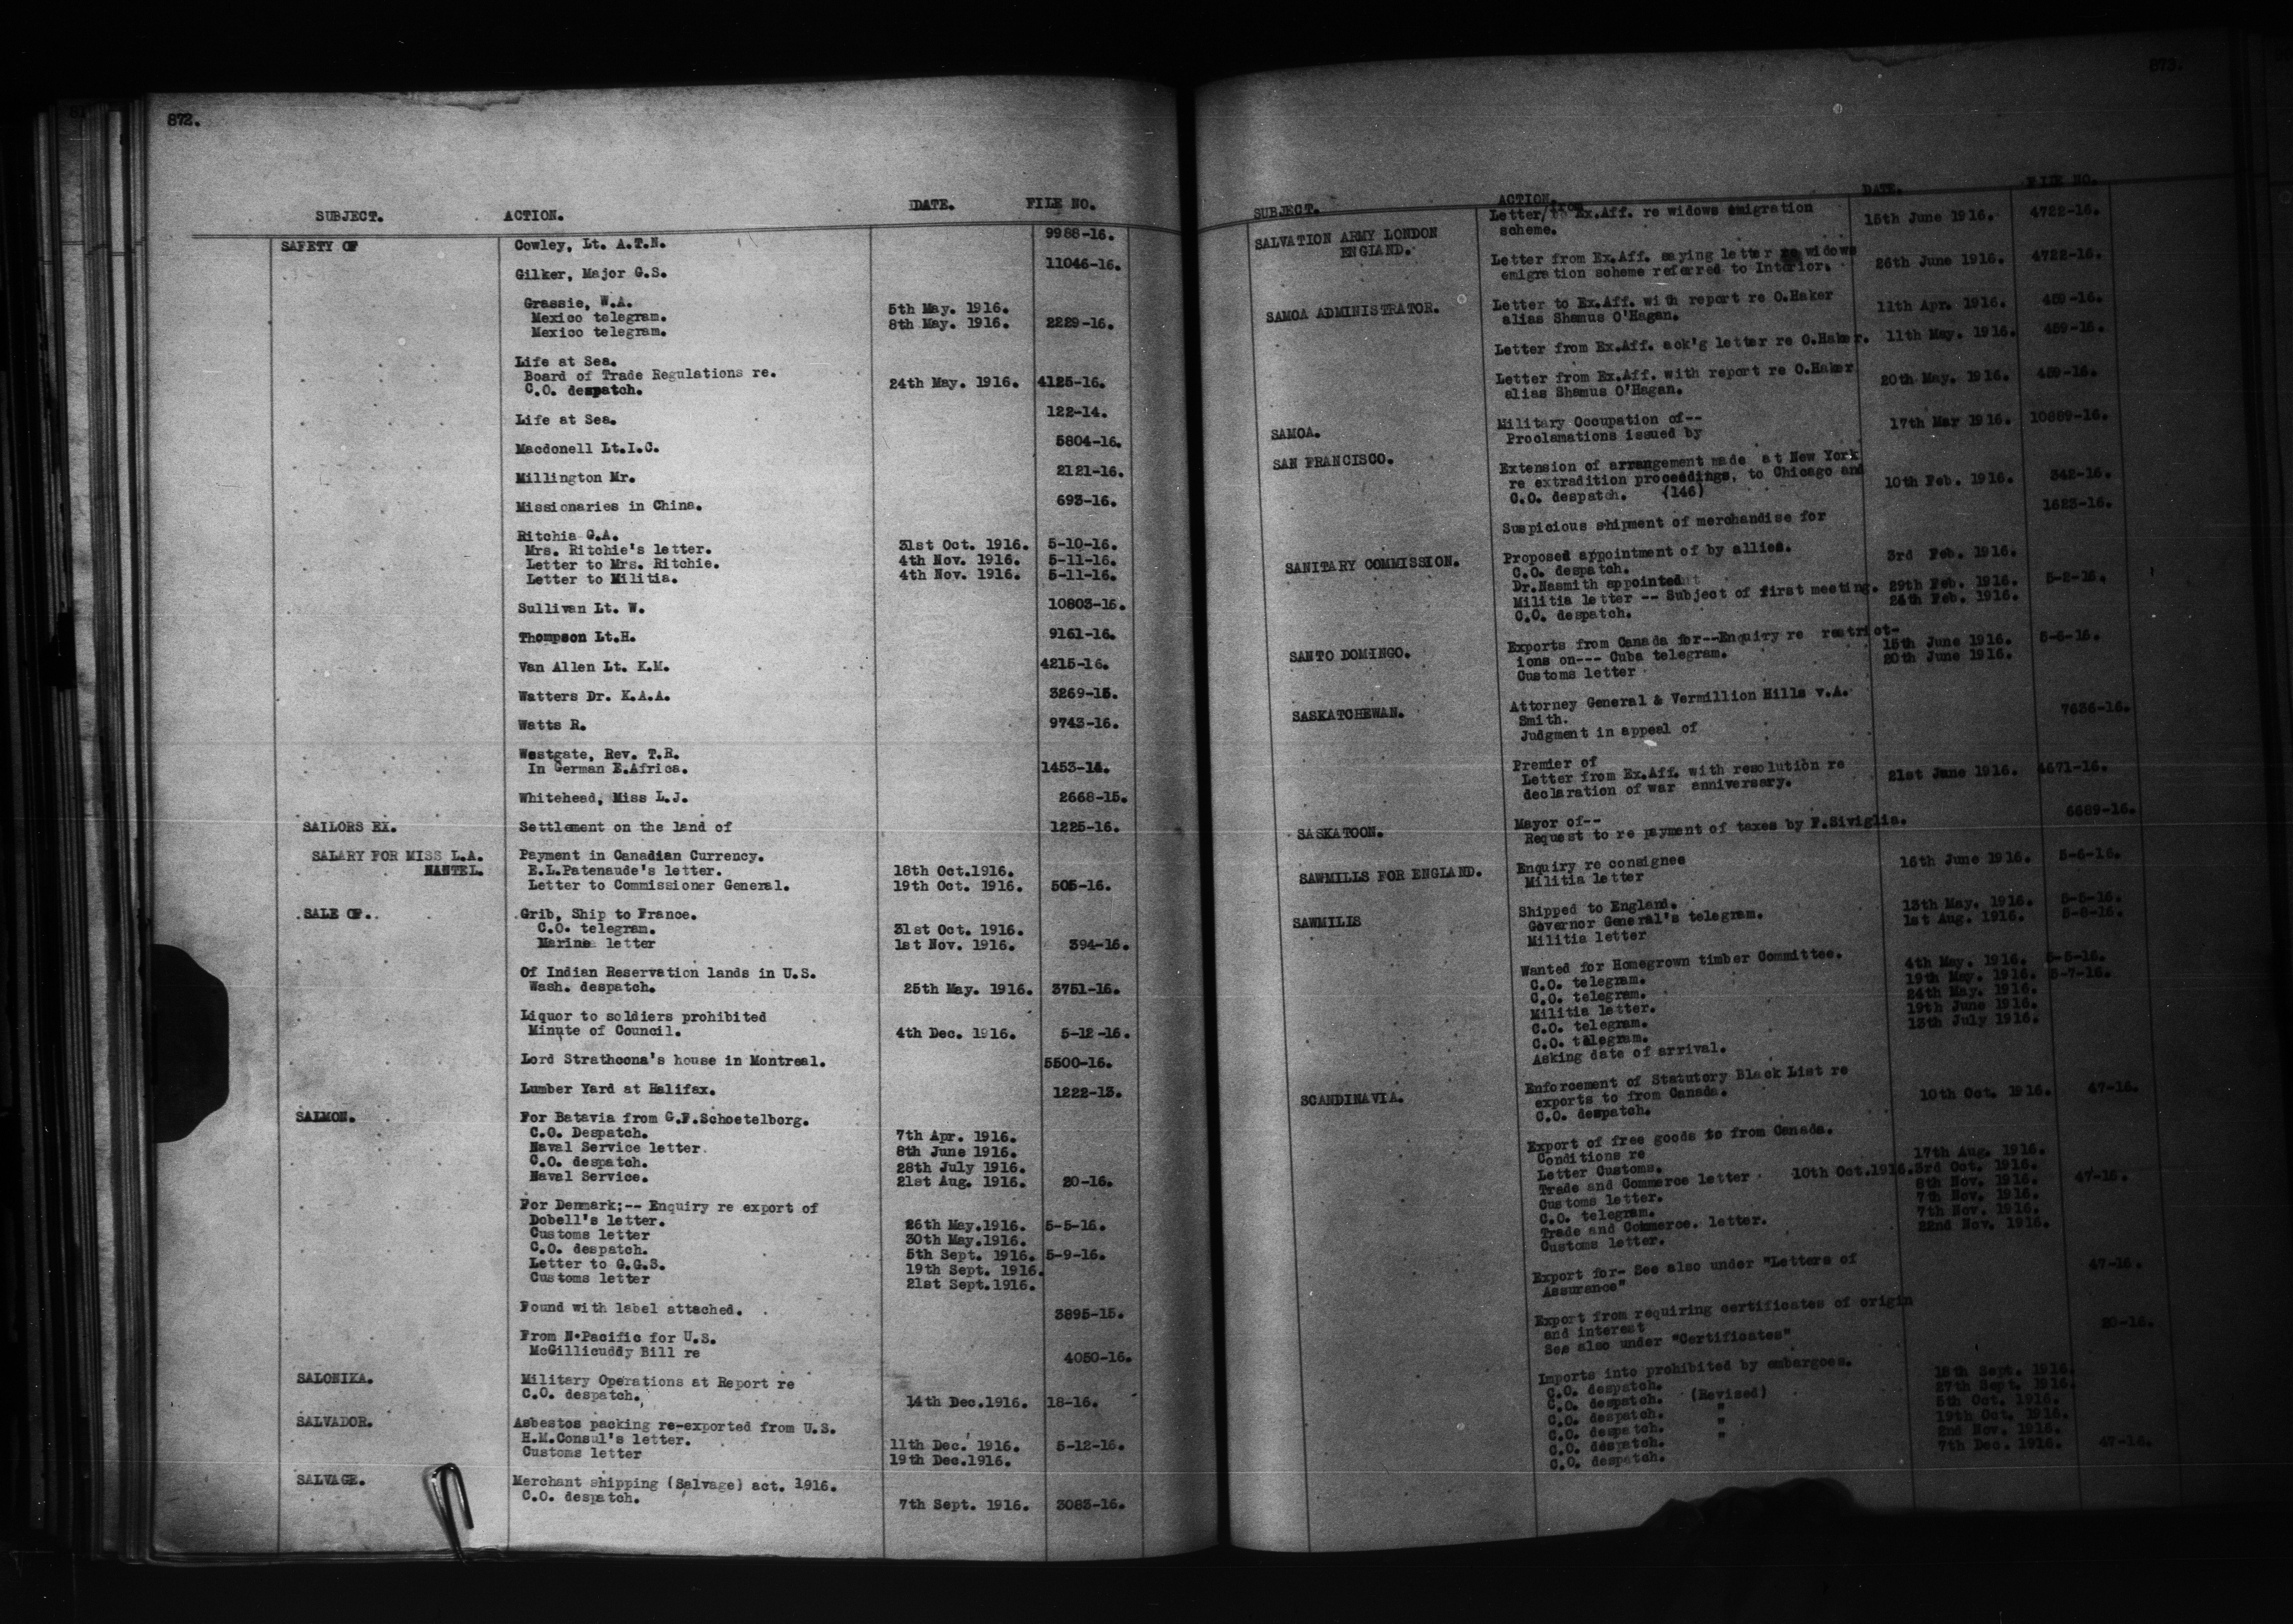 872.
SUBJECT. ACTION. DATE. FILE NO.
SAFETY OF Cowley, Lt. A.T.N. 9988-16.
Gilker, Major G.S. 11046-16.
Grassie, W.A.
Mexico telegram. 5th May. 1916.
Mexico telegram. 8th May. 1916. 2229-16.
Life at Sea.
Board of Trade Regulations re.
C.O. despatch. 24th May. 1916. 4125-16.
Life at Sea. 122-14.
Macdonell Lt.I.C. 5804-16.
Millington Mr. 2121-16.
Missionaries in China. 693-16.
Ritchia G.A.
Mrs. Ritchie's letter. 31st Oct. 1916. 5-10-16.
Letter to Mrs. Ritchie. 4th Nov. 1916. 5-11-16.
Letter to Militia. 4th Nov. 1916. 5-11-16.
Sullivan Lt. W. 10803-16.
Thompson Lt.H. 9161-16.
Van Allen Lt. K.M. 4215-16.
Watters Dr. K.A.A. 3269-15.
Watts R. 9743-16.
Westgate, Rev. T.R.
In German E.Africa. 1453-14.
Whitehead, Miss L.J. 2668-15.
SAILORS EX. Settlement on the land of 1225-16.
SALARY FOR MISS L.A. Payment in Canadian Currency.
NANTEL. E.L.Patenaude's letter. 18th Oct.1916.
Letter to Commissioner General. 19th Oct. 1916. 505-16.
SALE OF. Grib, Ship to France.
C.O. telegram. 31st Oct. 1916.
Marine letter 1st Nov. 1916. 394-16.
Of Indian Reservation lands in U.S.
Wash. despatch. 25th May. 1916. 3751-16.
Liquor to soldiers prohibited
Minute of Council. 4th Dec. 1916. 5-12-16.
Lord Strathcona's house in Montreal. 5500-16.
Lumber Yard at Halifax. 1222-13.
SALMON. For Batavia from G.F.Schoetelborg.
C.O. Despatch. 7th Apr. 1916.
Naval Service letter. 8th June 1916.
C.O. despatch. 28th July 1916.
Naval Service. 21st Aug. 1916. 20-16.
For Denmark;-- Enquiry re export of
Dobell's letter. 26th May.1916. 5-5-16.
Customs letter 30th May.1916.
C.O. despatch. 5th Sept. 1916. 5-9-16.
Letter to G.G.S. 19th Sept. 1916.
Customs letter 21st Sept.1916.
Found with label attached. 3895-15.
From N.Pacific for U.S.
McGillicuddy Bill re 4050-16.
SALONIKA. Military Operations at Report re
C.O. despatch. 14th Dec.1916. 18-16.
SALVADOR. Asbestos packing re-exported from U.S.
H.M.Consul's letter. 11th Dec. 1916. 5-12-16.
Customs letter 19th Dec.1916.
SALVAGE. Merchant shipping (Salvage) act. 1916.
C.O. despatch. 7th Sept. 1916. 3083-16.
873.
SUBJECT. ACTION. DATE. FILE NO.
SALVATION ARMY LONDON Letter/from Ex.Aff. re widows emigration
ENGLAND. scheme. 15th June 1916. 4722-16.
Letter from Ex.Aff. saying letter re widows
emigration scheme referred to Interior. 26th June 1916. 4722-16.
SAMOA ADMINISTRATOR. Letter to Ex.Aff. with report re O.Haker
alias Shamus O'Hagan. 11th Apr. 1916. 459-16.
Letter from Ex.Aff. ack'g letter re O.Haker. 11th May. 1916. 459-16.
Letter from Ex.Aff. with report re O.Haker
alias Shamus O'Hagan. 20th May. 1916. 459-16.
SAMOA. Military Occupation of--
Proclamations issued by 17th Mar 1916. 10889-16.
SAN FRANCISCO. Extension of arrangement made at New York
re extradition proceedings, to Chicago and
C.O. despatch. (146) 10th Feb. 1916. 342-16.
Suspicious shipment of merchandise for 1623-16.
SANITARY COMMISSION. Proposed appointment of by allies.
C.O. despatch. 3rd Feb. 1916.
Dr.Nasmith appointed
Militia letter -- Subject of first meeting. 29th Feb. 1916. 5-2-16.
C.O. despatch. 26th Feb. 1916.
SANTO DOMINGO. Exports from Canada for--Enquiry re restrict-
ions on--- Cuba telegram. 15th June 1916. 5-6-16.
Customs letter 20th June 1916.
SASKATCHEWAN. Attorney General & Vermillion Hills v.A.
Smith.
Judgment in appeal of 7636-16.
Premier of
Letter from Ex.Aff. with resolution re
declaration of war anniversary. 21st June 1916. 4671-16.
SASKATOON. Mayor of--
Request to re payment of taxes by F.Siviglia. 6689-16.
SAWMILLS FOR ENGLAND. Enquiry re consignee
Militia letter 16th June 1916. 5-6-16.
SAWMILLS Shipped to England.
Governor General's telegram. 13th May. 1916. 5-5-16.
Militia letter 1st Aug. 1916. 5-8-16.
Wanted for Homegrown timber Committee.
C.O. telegram. 4th May. 1916. 5-5-16.
C.O. telegram. 19th May. 1916. 5-7-16.
Militia letter. 24th May. 1916.
C.O. telegram. 19th June 1916.
C.O. telegram. 13th July 1916.
Asking date of arrival.
SCANDINAVIA. Enforcement of Statutory Black List re
exports to from Canada.
C.O. despatch. 10th Oct. 1916. 47-16.
Export of free goods to from Canada.
Conditions re
Letter Customs. 17th Aug. 1916.
Trade and Commerce letter 10th Oct.1916. 3rd Oct. 1916.
Customs letter. 8th Nov. 1916. 47-16.
C.O. telegram. 7th Nov. 1916.
Trade and Commerce. letter. 7th Nov. 1916.
Customs letter. 22nd Nov. 1916.
Export for- See also under "Letters of
Assurance" 47-16.
Export from requiring certificates of origin
and interest
See also under "Certificates" 20-16.
Imports into prohibited by embargoes.
C.O. despatch. 18th Sept. 1916.
C.O. despatch. (Revised) 27th Sept. 1916.
C.O. despatch. " 5th Oct. 1916.
C.O. despatch. " 19th Oct. 1916.
C.O. despatch. " 2nd Nov. 1916.
C.O. despatch. 7th Dec. 1916. 47-16.